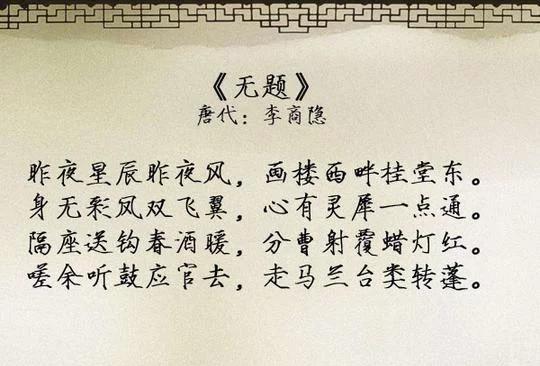 《无题》
唐代：李商隐
昨夜星辰昨夜风，画楼西畔桂堂东。
身无彩风双飞翼，心有灵犀一点通。
隔座送钩春酒暖，分曹射覆蜡灯红。
嗟余听鼓应官去，走马兰台类转蓬。